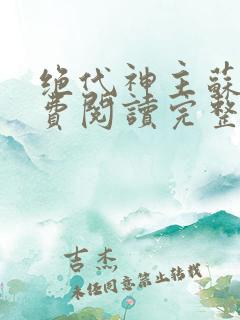 绝代神主蘇
費閱讀完整
吉杰
未经同意禁止转载